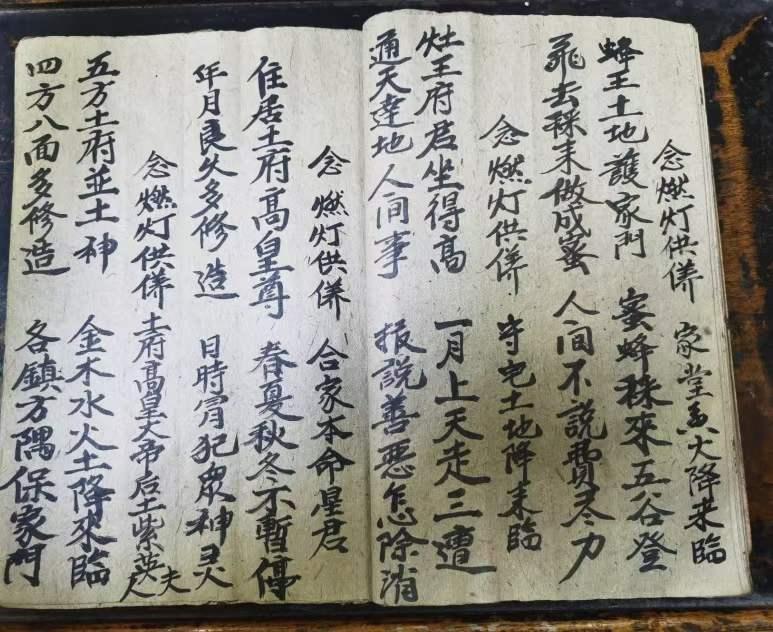 念燃灯供併 家堂香火降来臨
蜂王土地護家門 蜜蜂採來五谷登
飛去採来做成蜜 人间不說費尽力
念燃灯供併 守宅土地降来臨
灶王府君坐得高 一月上天走三遭
通天達地人间事 报說善惡怎除消
念燃灯供併 合家本命星君
住居土府高皇尊 春夏秋冬不暫停
年月良久多修造 日時冐犯眾神灵
念燃灯供併 土府高皇大帝后土紫英夫人
五方土府並土神 金木水火土降來臨
四方八面多修造 各鎮方隅保家門